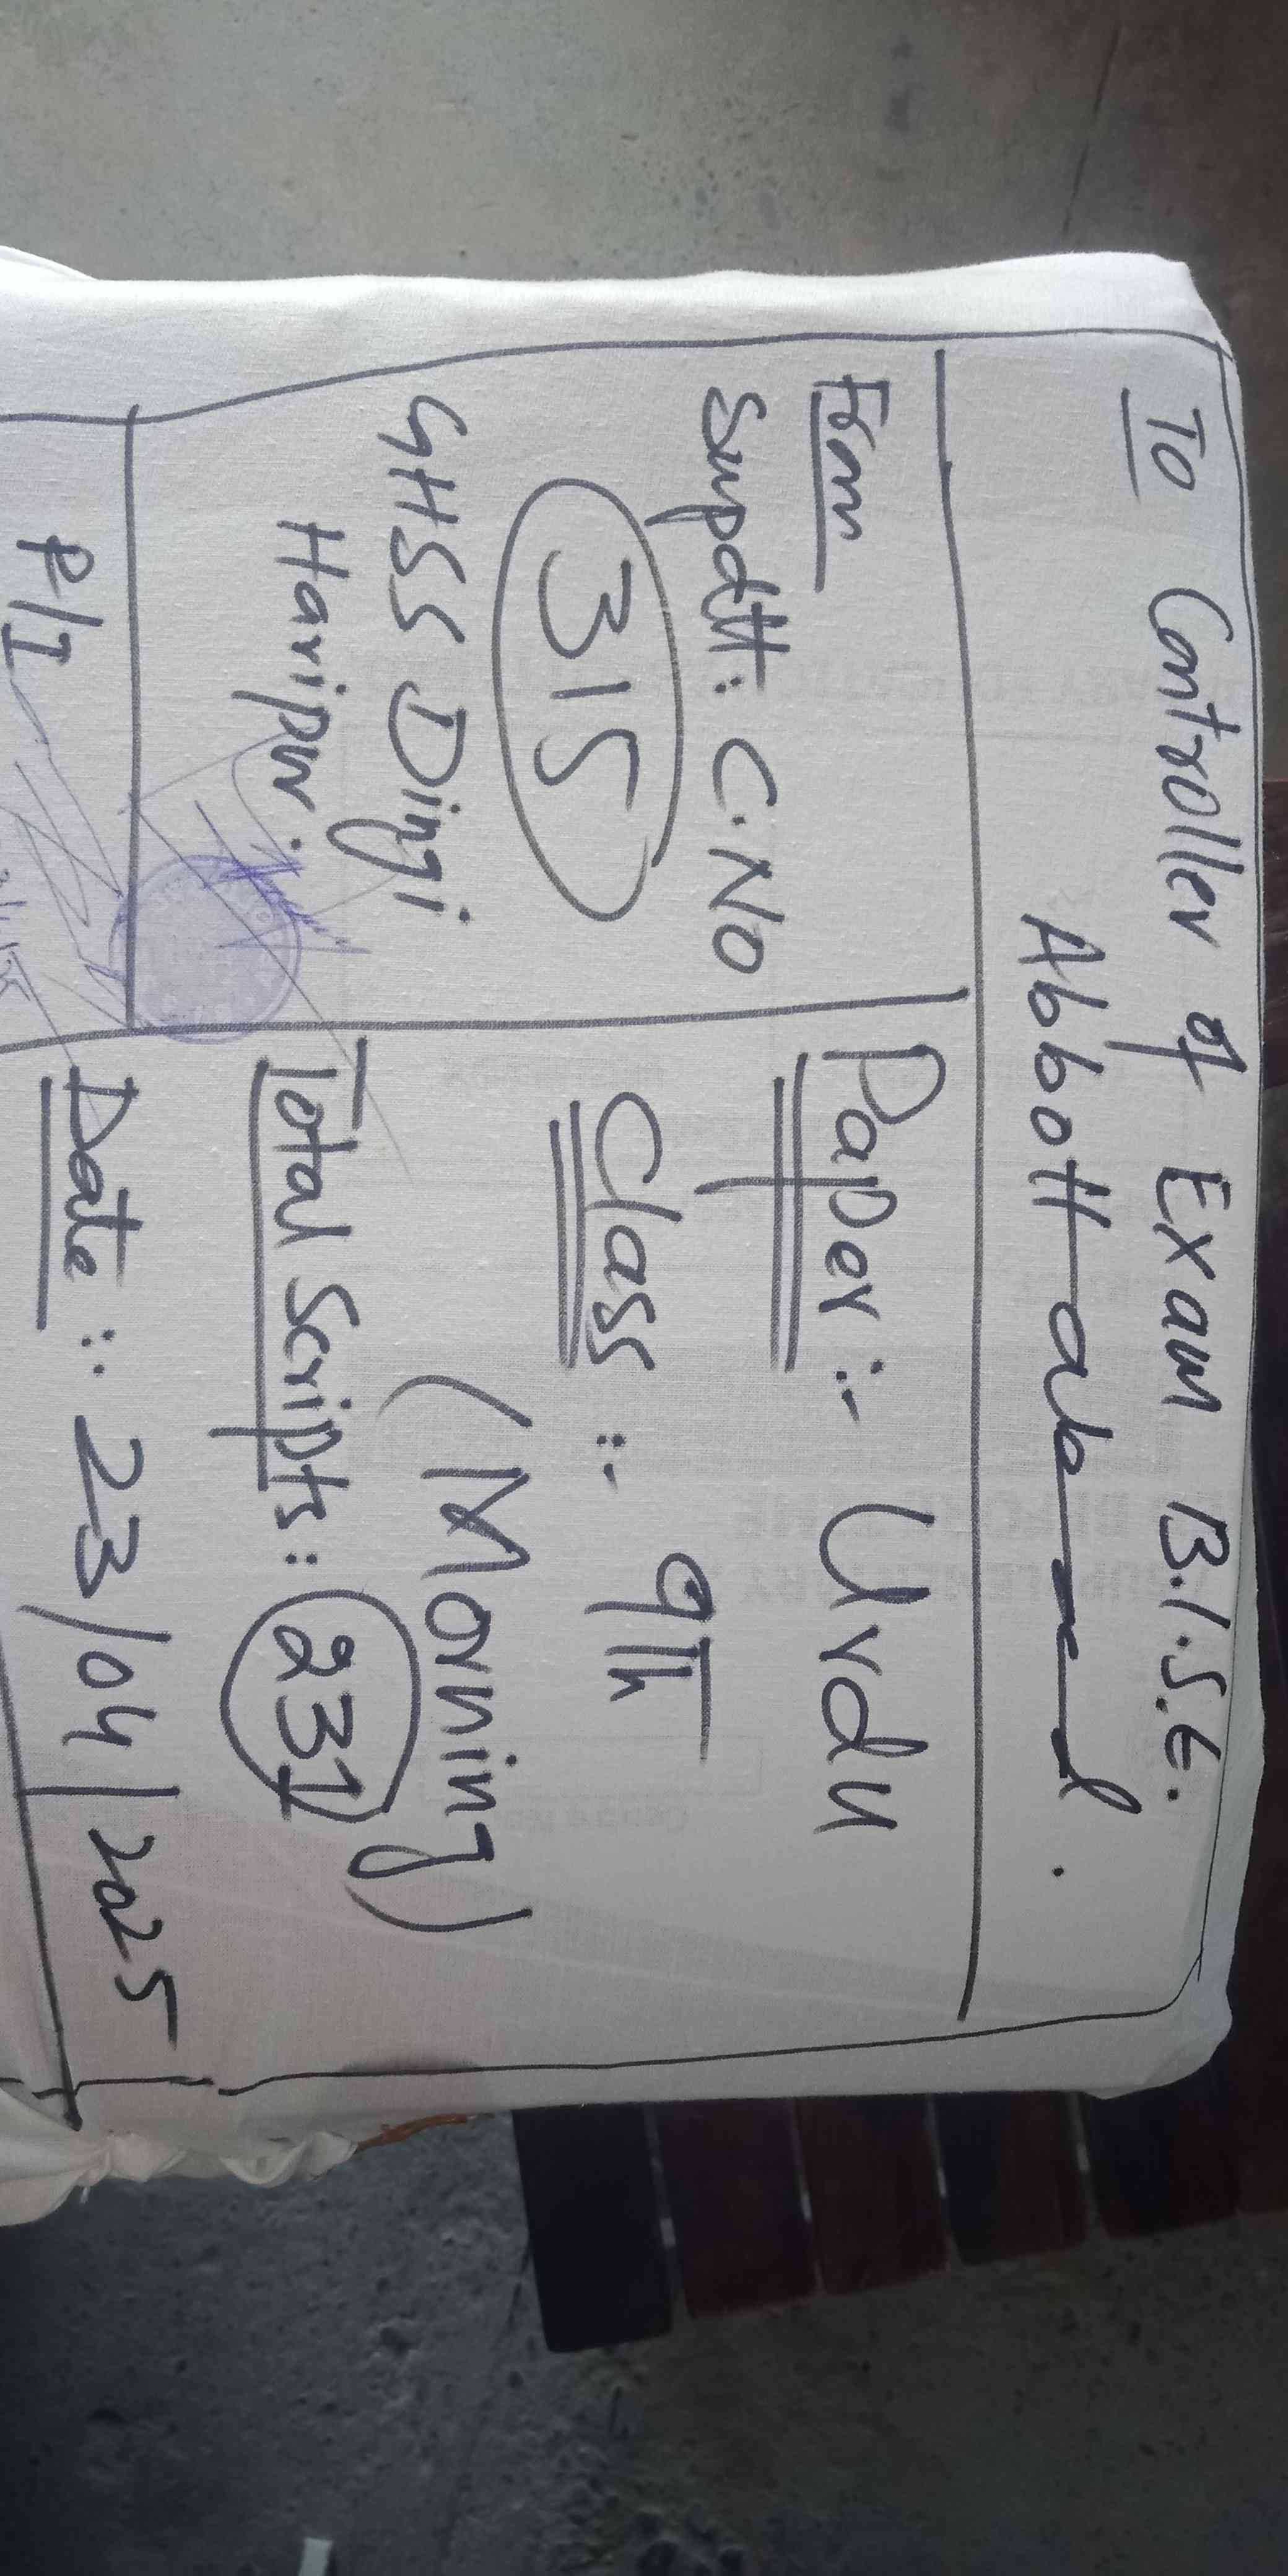 To Controller of Exam B.I.S.E.
Abbottabad.
From
Supdtt: C.No
315
GHSS Dingi
Haripur.
P/I
Paper :- Urdu
Class :- 9th
(Morning)
Total Scripts: 231
Date :- 23/04/2025